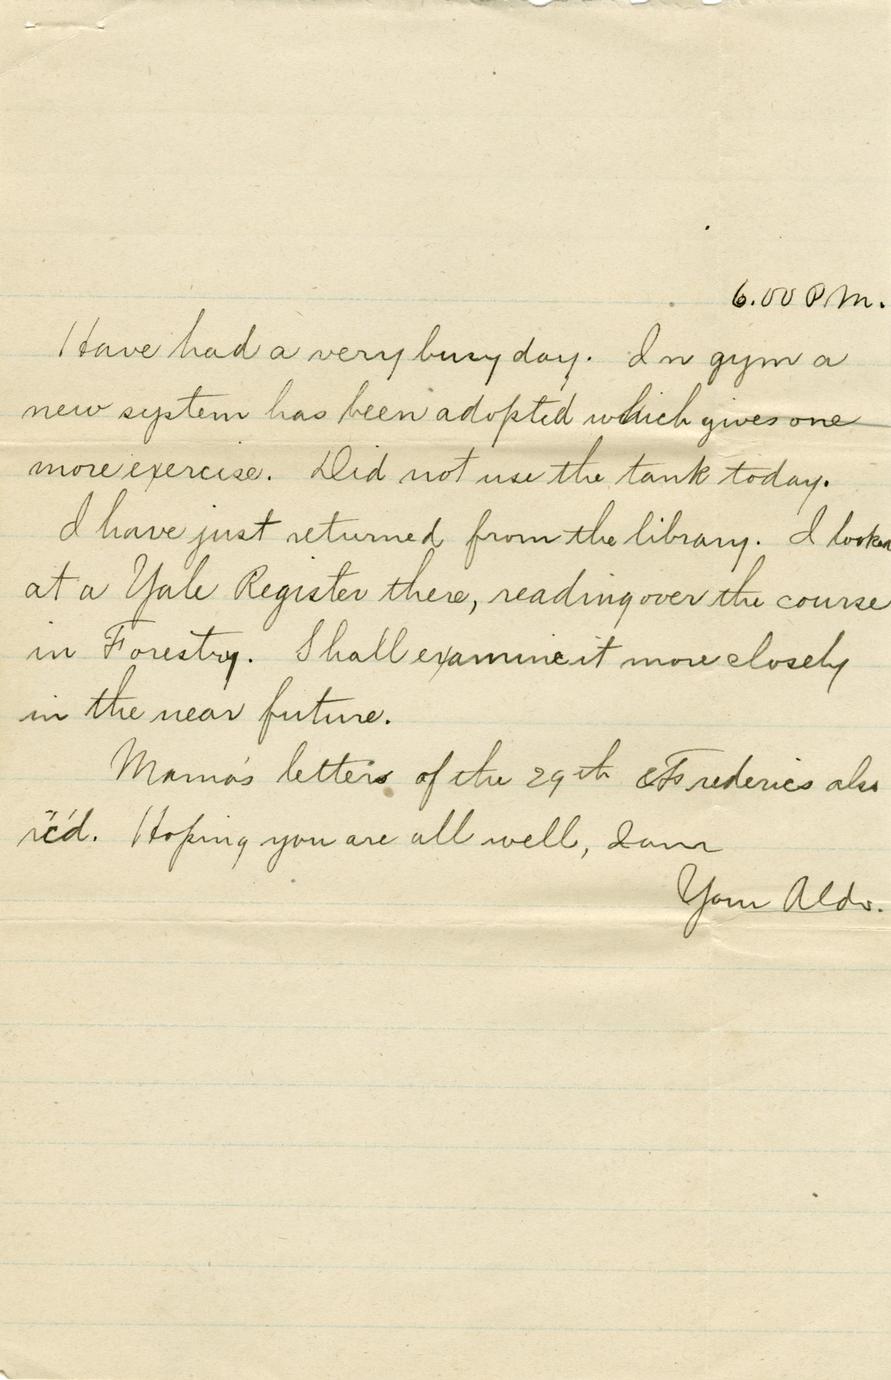 6.00 P.M.
Have had a very busy day. In gym a
new system has been adopted which gives one
more exercise. Did not use the tank today.
I have just returned from the library. I looked
at a Yale Register there, reading over the course
in Forestry. Shall examine it more closely
in the near future.
Mama's letters of the 29th & Frederics also
rec'd. Hoping you are all well, I am
Your Aldo.